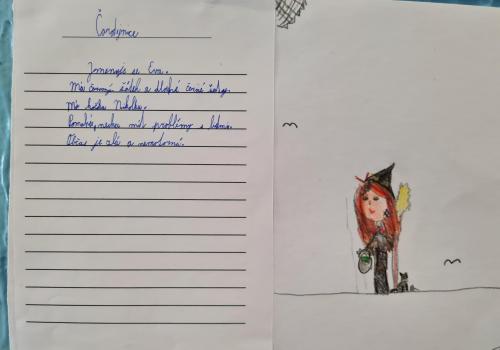 Čarodejnice
Jmenuje se Eva.
Má černý šátek a dlouhé černé šaty.
Má kočku Nikolku.
Pomáhá, nechce mít problémy s lidma.
Občas je zlá a nervózní.